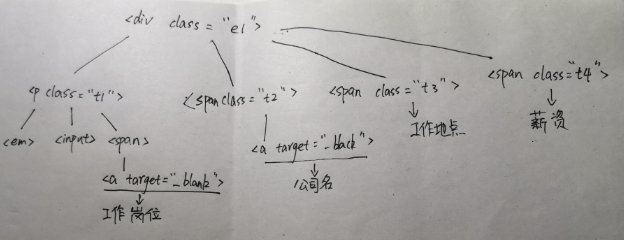 <div class = "el">
<p class="t1">
<span class="t2">
<span class="t3">
<span class="t4">
<em>
<input>
<span>
<a target="_black">
工作地点
薪资
<a target="_blank">
公司名
工作岗位